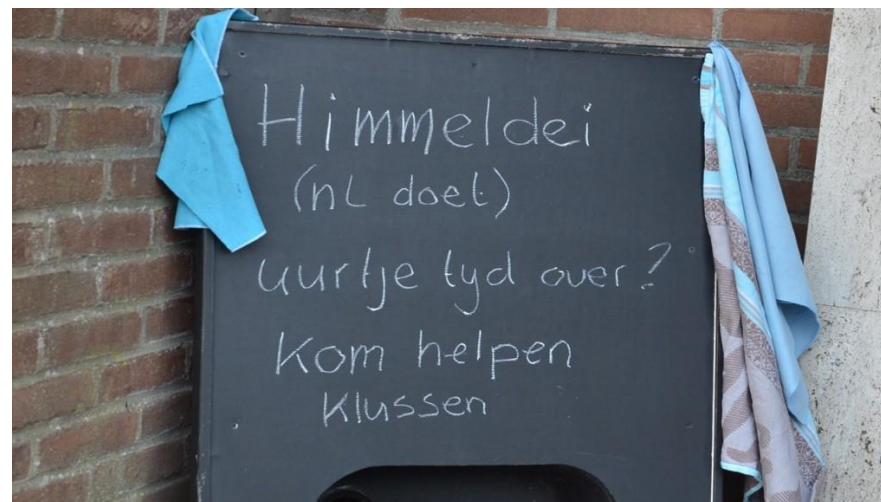 Himmeldei
(nL doet)
uurtje tyd over?
Kom helpen
Klussen